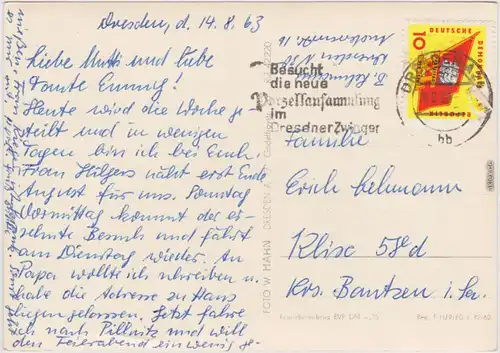 Dresden, d. 14.8.63
Liebe Mutti und liebe
Tante Emmy!
Heute wird die Woche ge-
teilt und in wenigen
Tagen bin ich bei Euch.
Frau Hilgers näht erst Ende
August für uns. Sonntag
Vormittag kommt der er-
sehnte Besuch und fährt
am Dienstag wieder. An
Papa wollte ich schreiben u.
habe die Adresse zu Haus
liegengelassen. Jetzt fahre
ich nach Pillnitz und will
den Feierabend ein wenig ge-
Besucht
die neue
Porzellansammlung
im
Dresdner Zwinger
hb
DEUTSCHE
10
Familie
Erich Lehmann
Klix 58d
Krs. Bautzen i. Sa.
FOTO W. HAHN DRESDEN A